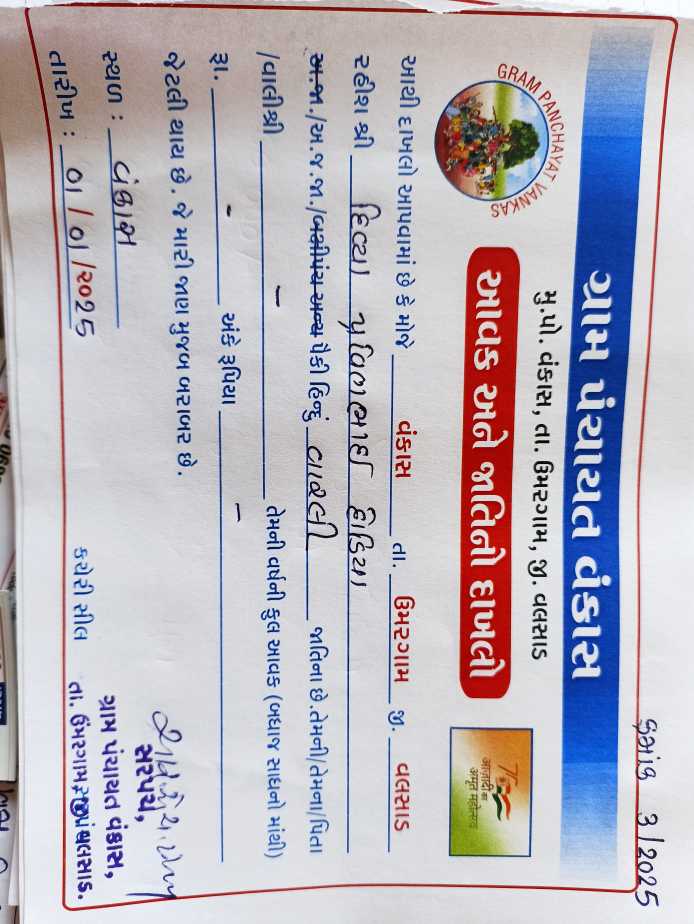 ક્રમાંક 3/2025
ગ્રામ પંચાયત વંકાસ
મુ.પો. વંકાસ, તા. ઉમરગામ, જી. વલસાડ
GRAM PANCHAYAT VANKAS
આવક અને જાતિનો દાખલો
75
आज़ादी का
अमृत महोत्सव
આથી દાખલો આપવામાં છે કે મોજે વંકાસ તા. ઉમરગામ જી. વલસાડ
રહીશ શ્રી દિવ્યા પ્રવિણભાઈ હાડિયા
અ.જા./અ.જ.જા./બક્ષીપંચ અન્ય પૈકી હિન્દુ વારલી જાતિના છે.તેમની/તેમના/પિતા
/વાલીશ્રી - તેમની વર્ષની કુલ આવક (બધાજ સાધનો માંથી)
રૂા. - અંકે રૂપિયા -
જેટલી થાય છે. જે મારી જાણ મુજબ બરાબર છે.
સ્થળ : વંકાસ
તારીખ : 01/01/2025
કચેરી સીલ
સરપંચ,
ગ્રામ પંચાયત વંકાસ,
તા. ઉમરગામ, જી. વલસાડ.